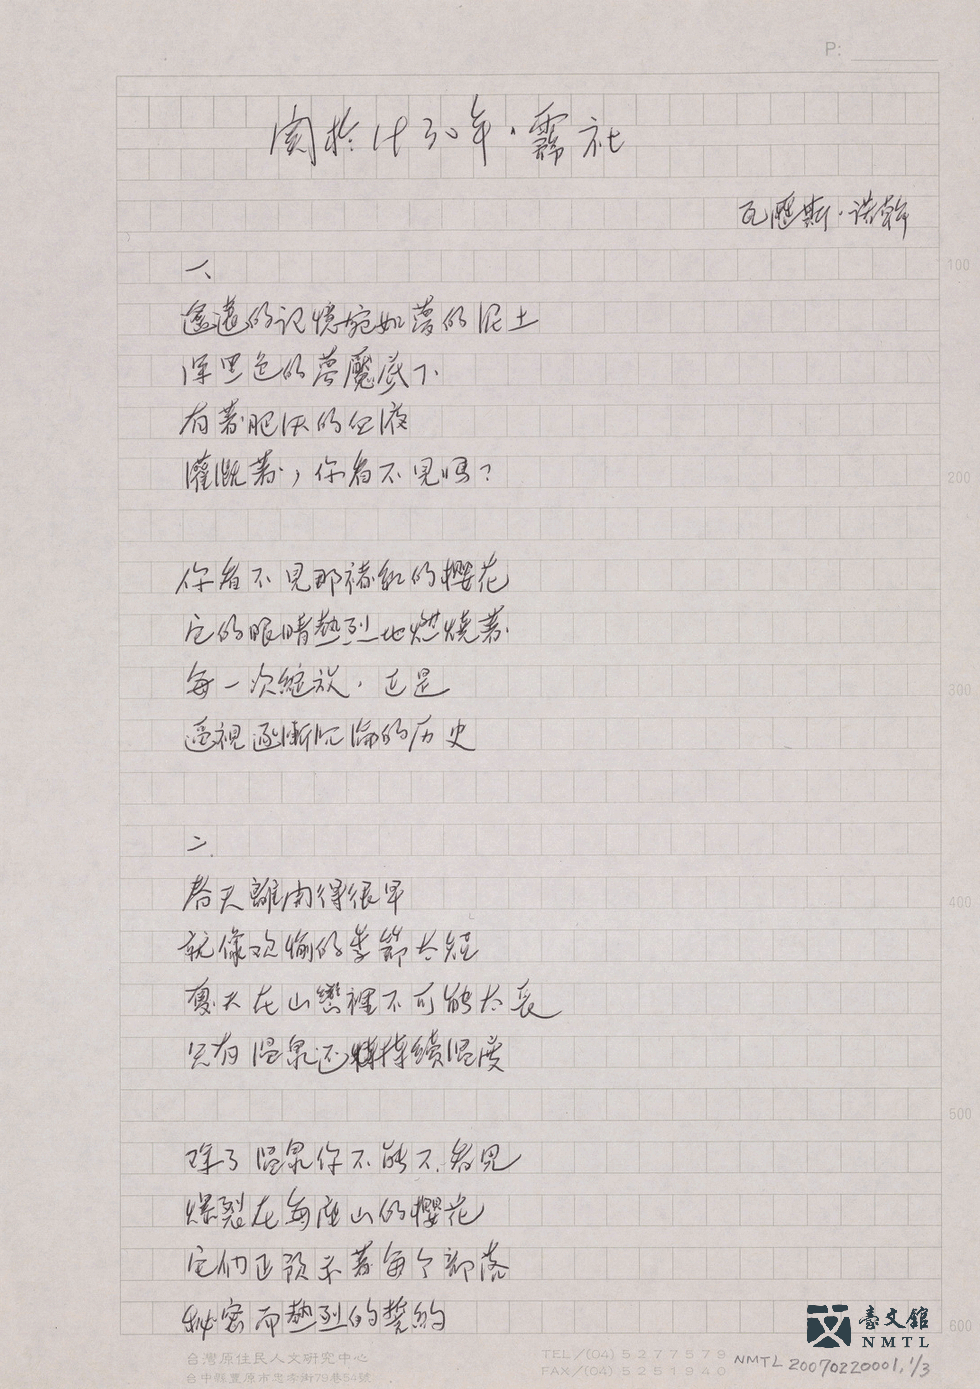 P:
關於1930年·霧社
瓦歷斯·诺幹
一、
遙遠的记憶宛如夢的泥土
深黑色的夢魘底下
有著肥沃的血液
灌溉著，你看不見吗？
你看不見那褚红的櫻花
它的眼睛熱烈地燃燒著
每一次綻放，正是
逼視逐漸沉淪的历史
二、
春天離開得很早
就像欢愉的季節太短
夏天在山巒裡不可能太長
只有温泉还持續温度
除了温泉你不能不看見
爆裂在每座山的櫻花
它们正预示著每个部落
秘密而熱烈的誓約
100
200
300
400
500
600
台灣原住民人文研究中心
台中縣豐原市忠孝街79巷54號
TEL/(04)5277579
FAX/(04)5251940
臺文館
NMTL
NMTL 20070220001, 1/3